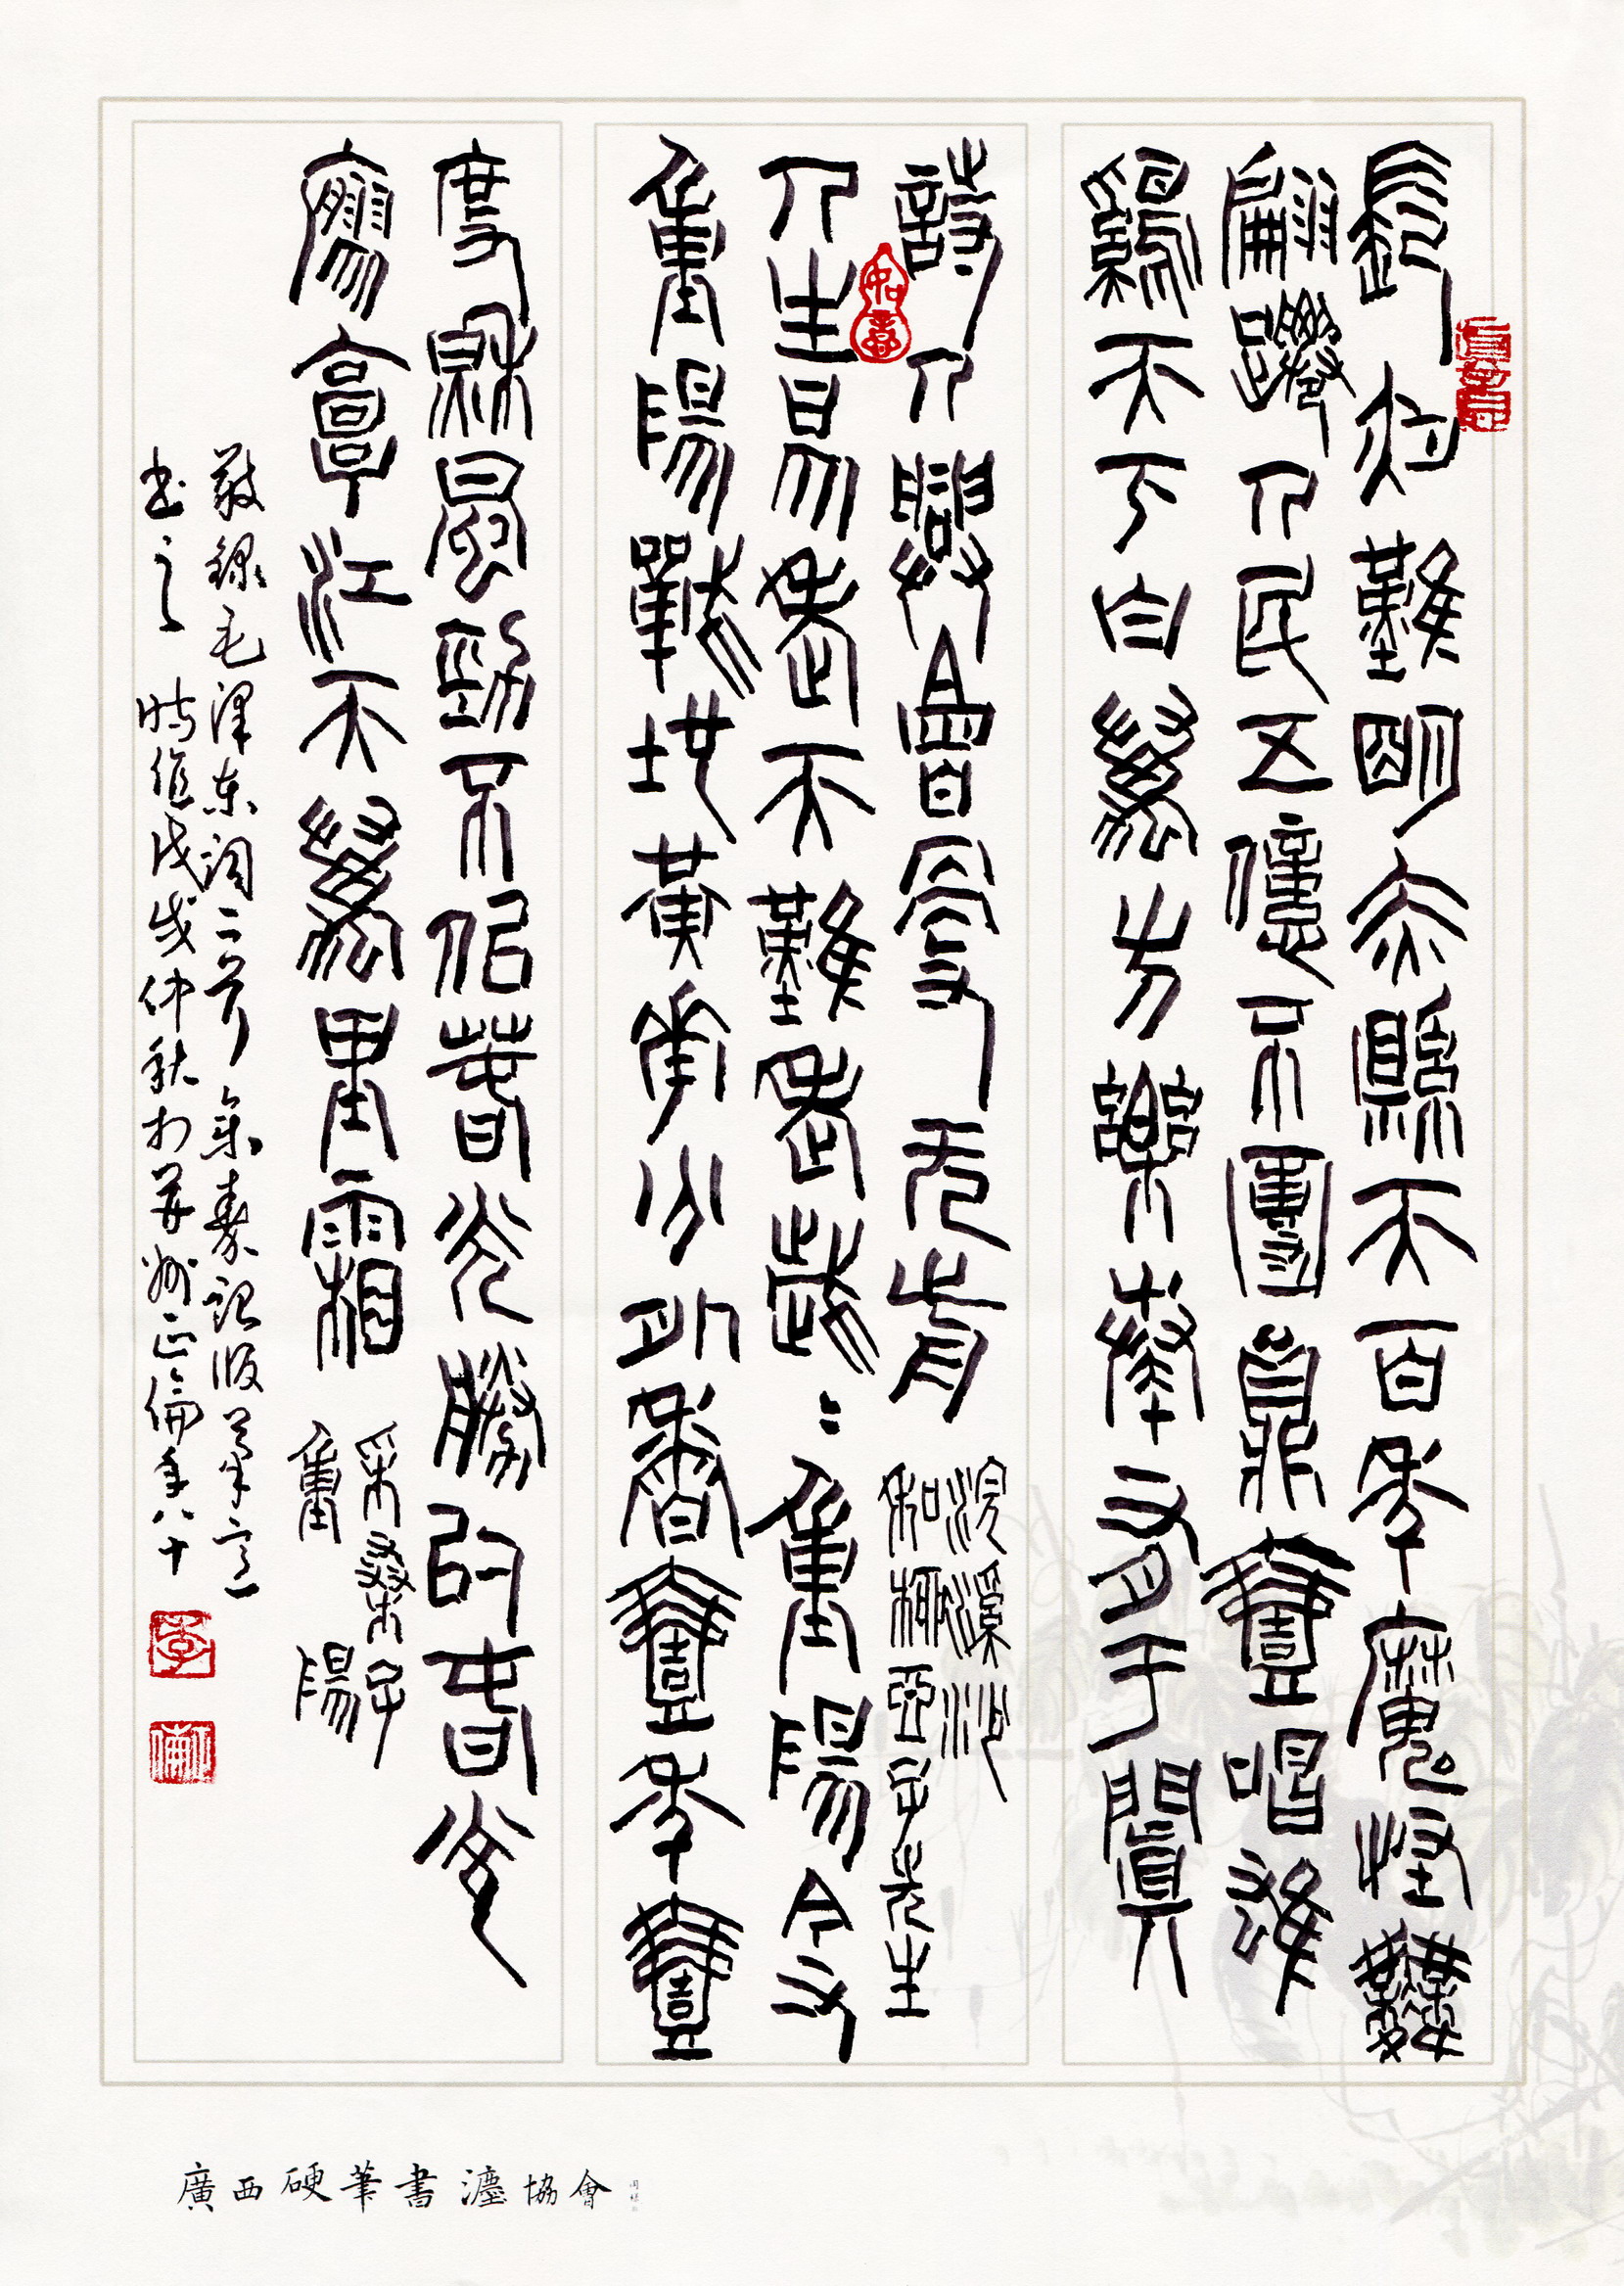 長夜難明赤縣天百年魔怪舞
翩躚人民五億不團圓壹唱雄
鷄天下白萬方樂奏有于闐
詩人興會更无前
浣溪沙
和柳亞子先生
如意
人生易老天難老歲〻重陽今又
重陽戰地黃花分外香壹年壹
度秋風勁不似春光勝似春光
寥廓江天萬里霜
采桑子
重陽
敬錄毛澤東詞二首 集秦詔版筆意
書之 時值戊戌仲秋於蘇州正倫年八十
李
廣西硬筆書灋協會